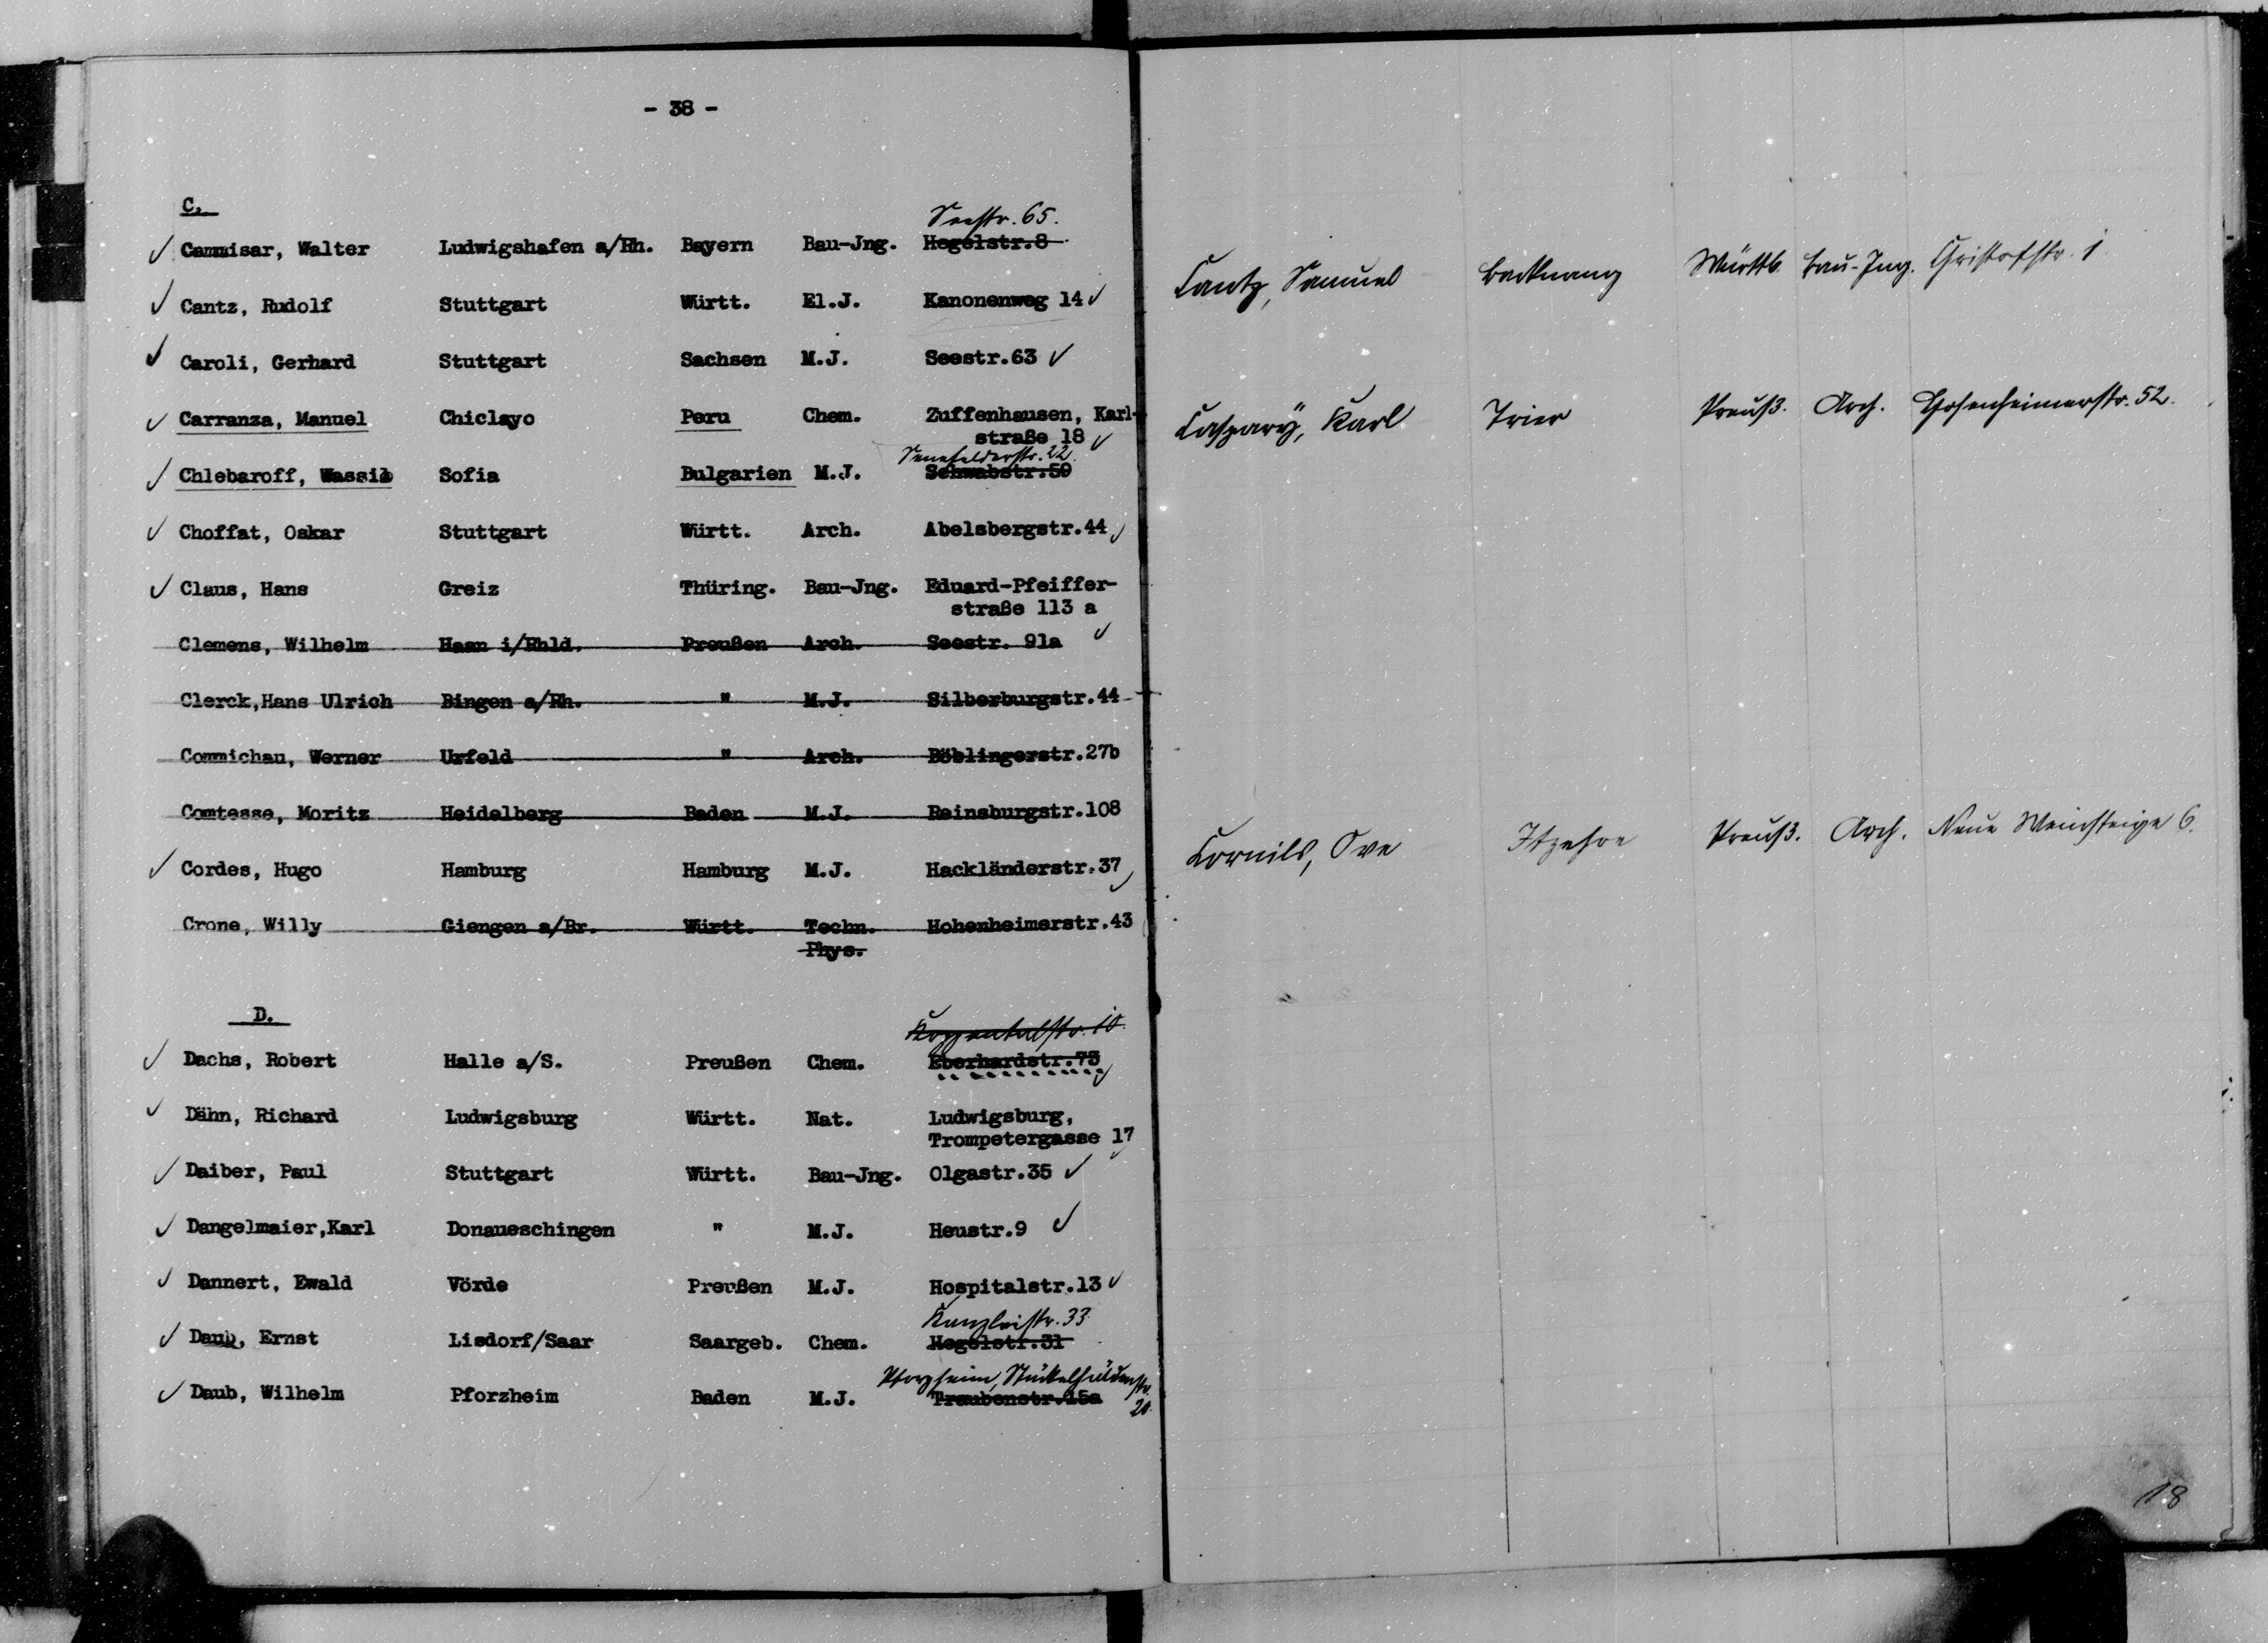 - 38 -
C.
Seestr. 65.
Cammisar, Walter Ludwigshafen a/Rh. Bayern Bau-Jng. Hegelstr.8
Cantz, Rudolf Stuttgart Württ. El.J. Kanonenweg 14
Caroli, Gerhard Stuttgart Sachsen M.J. Seestr.63
Carranza, Manuel Chiclayo Peru Chem. Zuffenhausen, Karl-
straße 18
Senefelderstr. 22.
Chlebaroff, Wassil Sofia Bulgarien M.J. Schwabstr.59
Choffat, Oskar Stuttgart Württ. Arch. Abelsbergstr.44
Claus, Hans Greiz Thüring. Bau-Jng. Eduard-Pfeiffer-
straße 113 a
Clemens, Wilhelm Haan i/Rhld. Preußen Arch. Seestr. 91a
Clerck,Hans Ulrich Bingen a/Rh. " M.J. Silberburgstr.44
Commichau, Werner Urfeld " Arch. Böblingerstr.27b
Comtesse, Moritz Heidelberg Baden M.J. Reinsburgstr.108
Cordes, Hugo Hamburg Hamburg M.J. Hackländerstr.37
Crone, Willy Giengen a/Br. Württ. Techn. Hohenheimerstr.43
Phys.
D.
Koppentalstr. 10.
Dachs, Robert Halle a/S. Preußen Chem. Eberhardstr.73
Dähn, Richard Ludwigsburg Württ. Nat. Ludwigsburg,
Trompetergasse 17
Daiber, Paul Stuttgart Württ. Bau-Jng. Olgastr.35
Dangelmaier,Karl Donaueschingen " M.J. Heustr.9
Dannert, Ewald Vörde Preußen M.J. Hospitalstr.13
Kanzleistr. 33.
Daub, Ernst Lisdorf/Saar Saargeb. Chem. Hegelstr.31
Pforzheim,
Daub, Wilhelm Pforzheim Baden M.J. Traubenstr.15a
20.
Cantz, Samuel Backnang Württb. Bau-Ing. Christofstr. 1
Caspary, Karl Trier Preuß. Arch. Hohenheimerstr. 52.
Cornils, Ove Itzehoe Preuß. Arch. Neue Weinsteige 6.
18